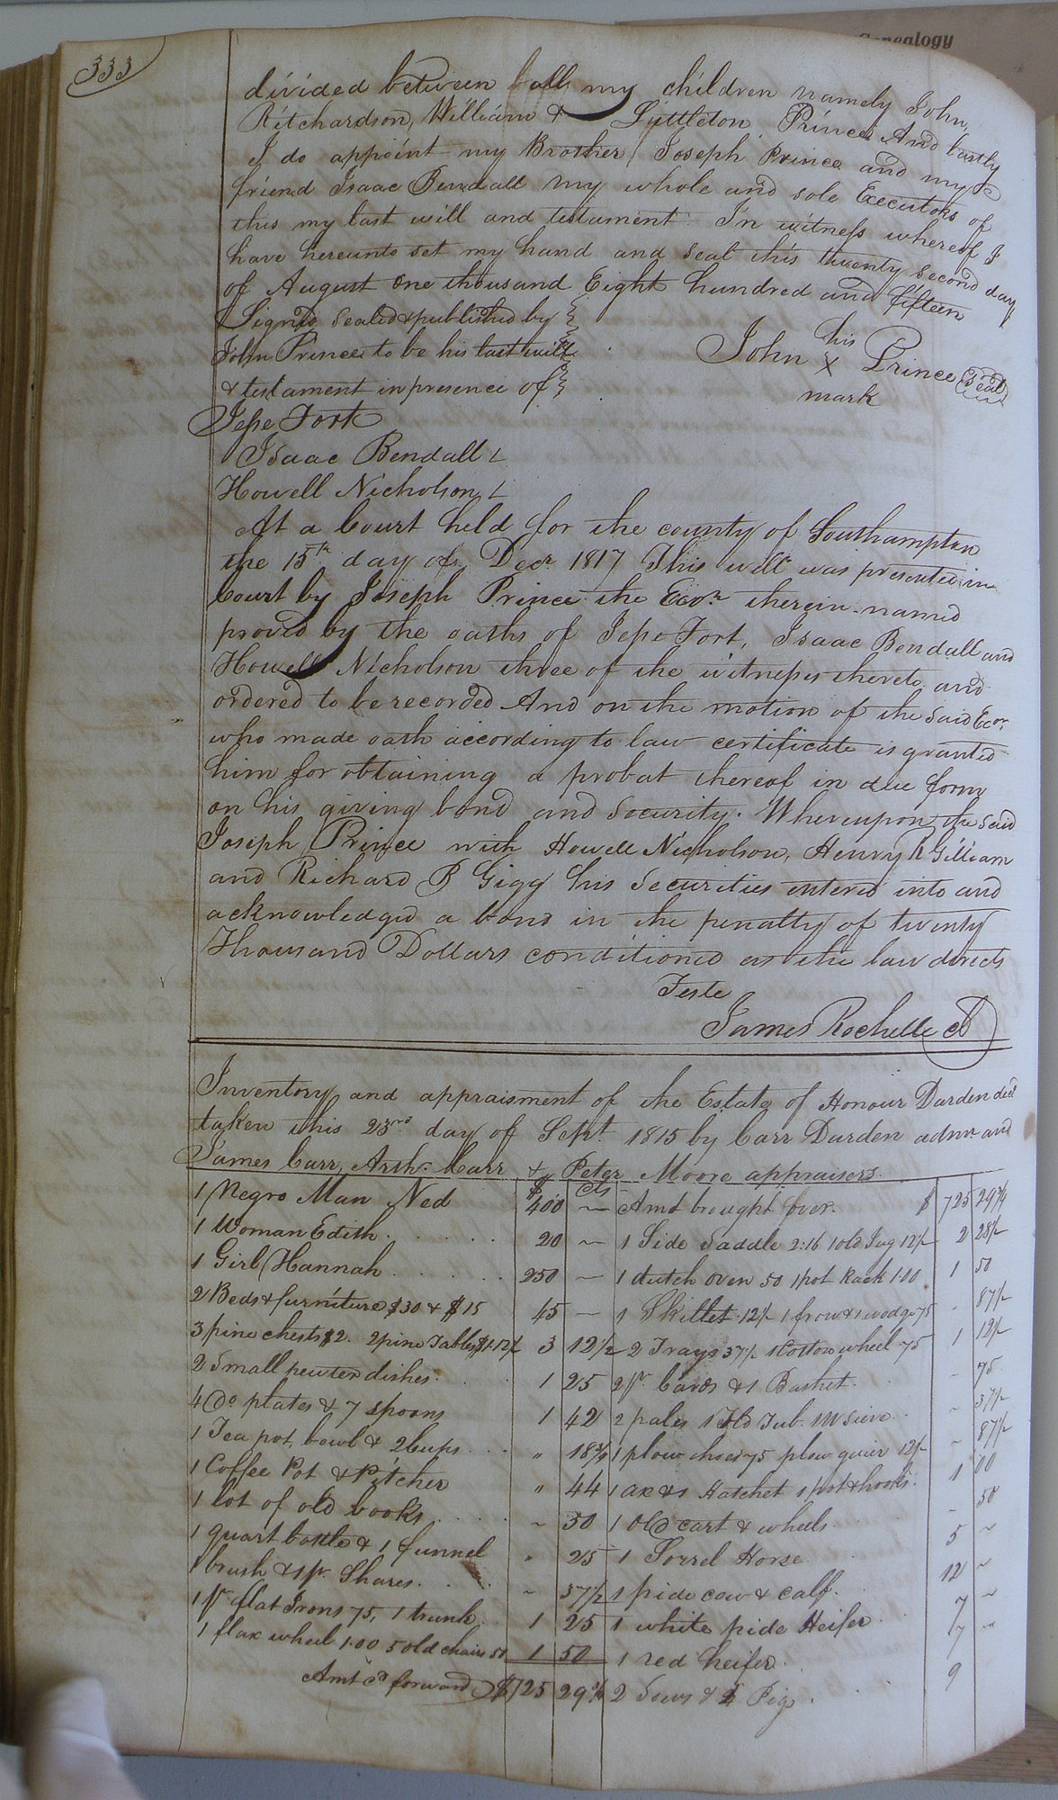 Genealogy
333
divided between all my children namely John,
Ritchardson, William & Lyttleton Prince And lastly
I do appoint my Brother Joseph Prince and my
friend Isaac Bendall my whole and sole Executors of
this my last will and testament In witness whereof I
have hereunto set my hand and seal this twenty second day
of August One thousand Eight hundred and fifteen
Signd sealed & published by
John Prince to be his last will
& testament in presence of
John his X mark Prince (Seal)
Jesse Fort
Isaac Bendall
Howell Nicholson
At a Court held for the county of Southampton
the 15th day of Decr 1817 This will was presented in
Court by Joseph Prince the Exor therein named
proved by the oaths of Jesse Fort, Isaac Bendall and
Howell Nicholson three of the witnesses thereto and
ordered to be recorded And on the motion of the said Exor
who made oath according to law certificate is granted
him for obtaining a probat thereof in due form
on his giving bond and security. Whereupon the said
Joseph Prince with Howell Nicholson, Henry R Gilliam
and Richard B Gigg his securities entered into and
acknowledged a bond in the penalty of twenty
Thousand Dollars conditioned as the law directs
Teste
James Rochelle
Inventory and appraisment of the Estate of Honour Darden decd
taken this 23rd day of Sept 1815 by Carr Darden admr and
James Carr, Arth. Carr & Peter Moore appraisers.
$ cts
1 Negro Man Ned 400 ~
1 Woman Edith 20 ~
1 Girl Hannah 250 ~
2 Beds & furniture $30 & $15 45 ~
3 pine chests $2. 2 pine Tables $1.12½ 3 12½
2 Small pewter dishes 1 25
4 Do plates & 7 spoons 1 42
1 Tea pot, bowl & 2 Cups " 18¾
1 Coffee Pot & Pitcher " 44
1 lot of old books ~ 50
1 quart bottle & 1 funnel " 25
1 brush & 1 pr. Shares ~ 37½
1 pr flat Irons 75, 1 trunk 1 25
1 flax wheel 1.00 5 old chairs 50 1 50
Amt cd forward $725 29¼
Amt brought over $ 725 29¼
1 Side Saddle 2.16 1 old Jug 12½ 2 28½
1 dutch oven 50 1 pot Rack 1.00 1 50
1 Skillet 12½ 1 frow & 1 wedge 75 87½
2 Trays 37½ 1 Cotton wheel 75 1 12½
2 pr Cards & 1 Basket 75
2 pales 1 Old Tub 1 M Sieve 37½
1 plow hoes 75 plow 12½ 87½
1 ax & 1 Hatchet 1 pot & hooks 1 00
1 Old cart & wheels 50
1 Sorrel Horse 5 ~
1 pide cow & calf 12 ~
1 white pide Heifer 7 ~
1 red heifer 7 ~
2 Sows & Pigs 9